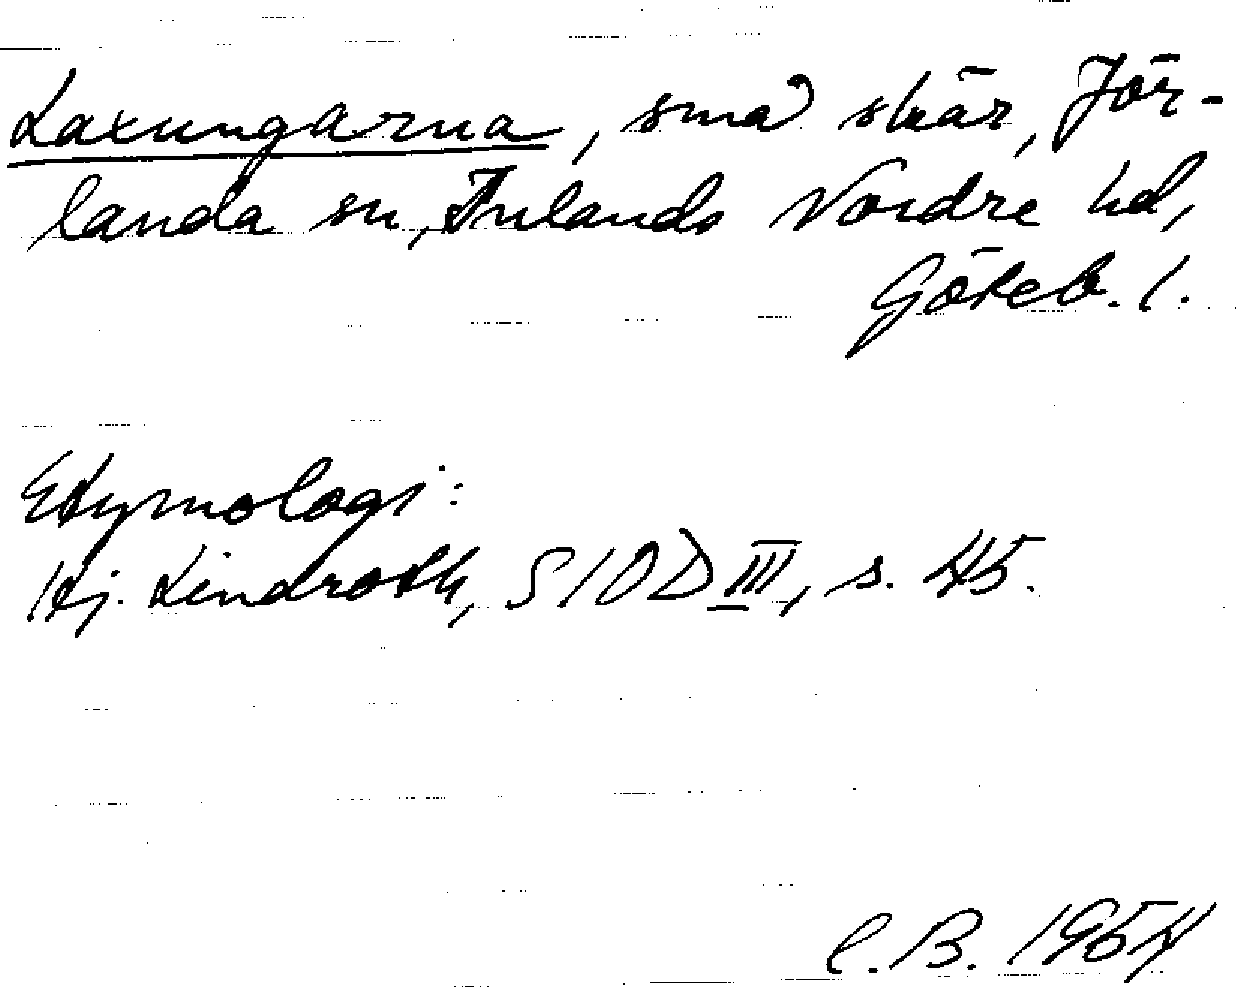 Laxungarna, små skär, Jör-
landa sn, Inlands Nordre hd,
Göteb. l.
Etymologi:
Hj. Lindroth, SIOD III, s. 45.
C.B. 1954